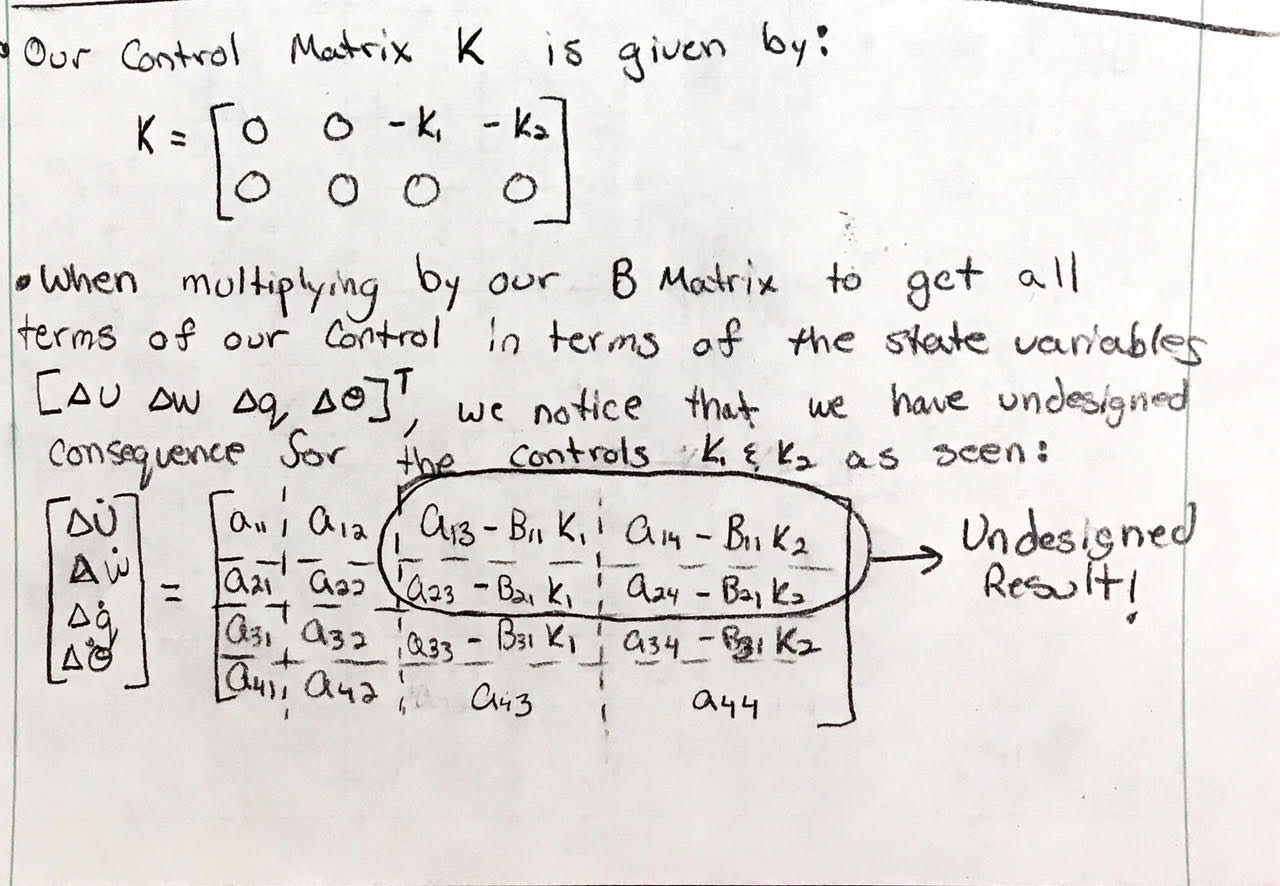 • Our Control Matrix K is given by:
K = [ 0 0 -K₁ -K₂
0 0 0 0 ]
• When multiplying by our B Matrix to get all
terms of our control in terms of the state variables
[ΔU Δw Δq Δθ]ᵀ, we notice that we have undesigned
consequence for the controls K₁ & K₂ as seen:
[ ΔU̇ [ a₁₁ a₁₂ a₁₃ - B₁₁ K₁ a₁₄ - B₁₁ K₂ → Undesigned
Δẇ = a₂₁ a₂₂ a₂₃ - B₂₁ K₁ a₂₄ - B₂₁ K₂ Result!
Δq̇ a₃₁ a₃₂ a₃₃ - B₃₁ K₁ a₃₄ - B₃₁ K₂
Δθ̇ ] a₄₁ a₄₂ a₄₃ a₄₄ ]